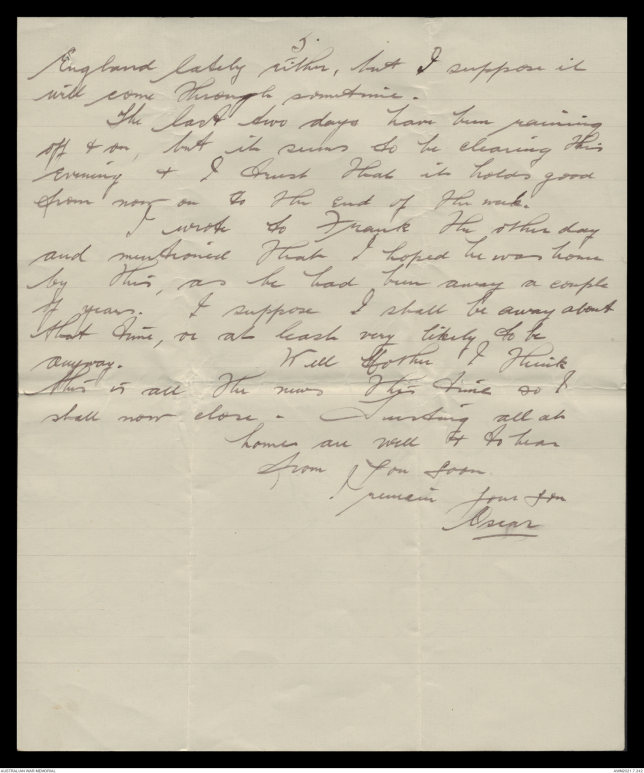 5.
England lately either, but I suppose it
will come through sometime.
The last two days have been raining
off & on, but it seems to be clearing this
evening & I trust that it holds good
from now on to the end of the week.
I wrote to Frank the other day
and mentioned that I hoped he was home
by this, as he had been away a couple
of years. I suppose I shall be away about
that time, or at least very likely to be
anyway. Well Mother I think
this is all the news this time so I
shall now close - Trusting all at
home are well & to hear
from you soon
I remain your son
Oscar
AUSTRALIAN WAR MEMORIAL
AWM2021.7.342